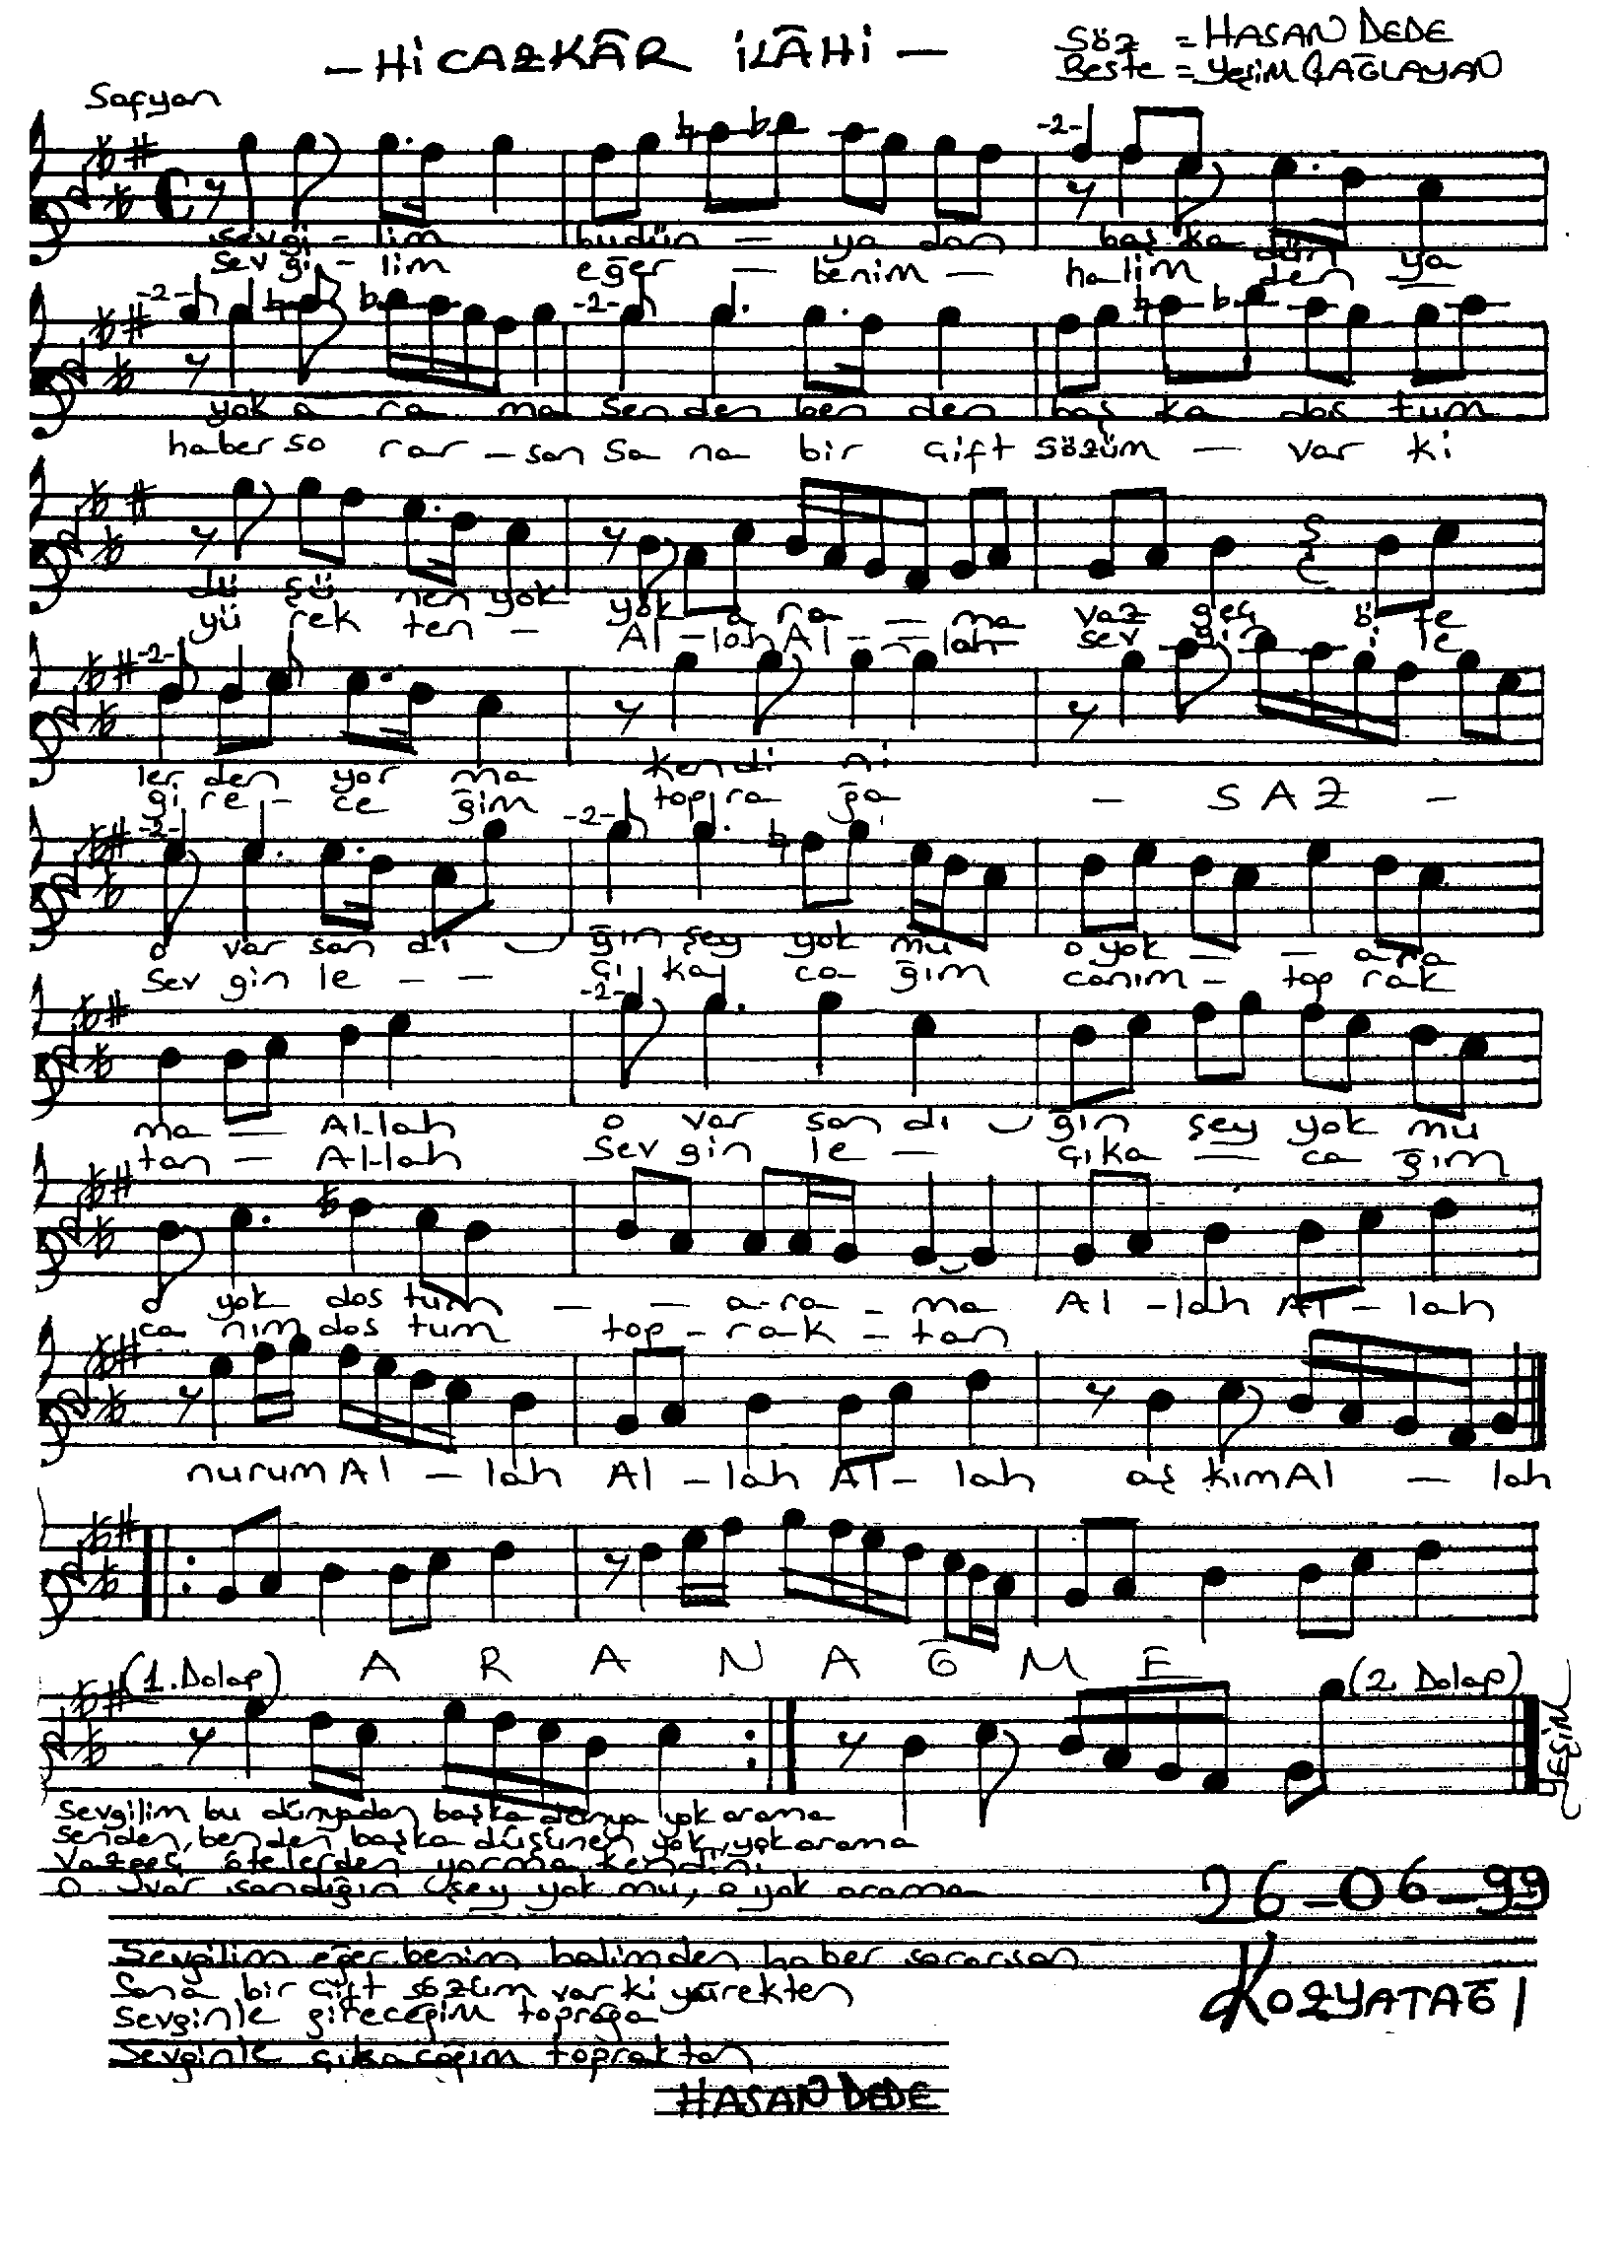 - HİCAZKÂR İLÂHİ -
Söz = HASAN DEDE
Beste = YEŞİM ÇAĞLAYAN
Sofyan
-2-
sevgi - lim budün - ya dan baş ka dün ya
Sev gi - lim eğer - benim - halim den -
-2- -2-
yok a ra ma senden ben den baş ka dos tum
haber so rar - san Sa na bir çift sözüm - var ki
dü şü nen yok yok a ra - ma vaz geç ö te
yü rek ten - Al - lah Al - - lah sev gin i le
-2-
ler den yor ma kendi ni
gi re - ce ğim topra ğa - SAZ -
-2- -2-
o var san dı ğın şey yok mu o yok - - a ra
Sev gin le - - çı ka ca ğım canım - top rak
-2-
ma - Al-lah o var san dı ğın şey yok mu
tan - Al-lah Sev gin le - çıka - ca ğım
o yok dos tum - - a-ra - ma Al - lah Al - lah
ca nım dos tum top - rak - tan
nurum Al - lah Al - lah Al - lah aş kım Al - lah
ARANAĞME
(1. Dolap) (2. Dolap)
YEŞİM
Sevgilim bu dünyadan başka dünya yok arama
senden, benden başka düşünen yok, yok arama
Vazgeç ötelerden yorma kendini
O var sandığın şey yok mu, o yok arama
26-06-99
Sevgilim eğer benim halimden haber sorarsan
Sana bir çift sözüm var ki yürekten
KOZYATAĞI
Sevginle gireceğim toprağa
Sevginle çıkacağım topraktan
HASAN DEDE